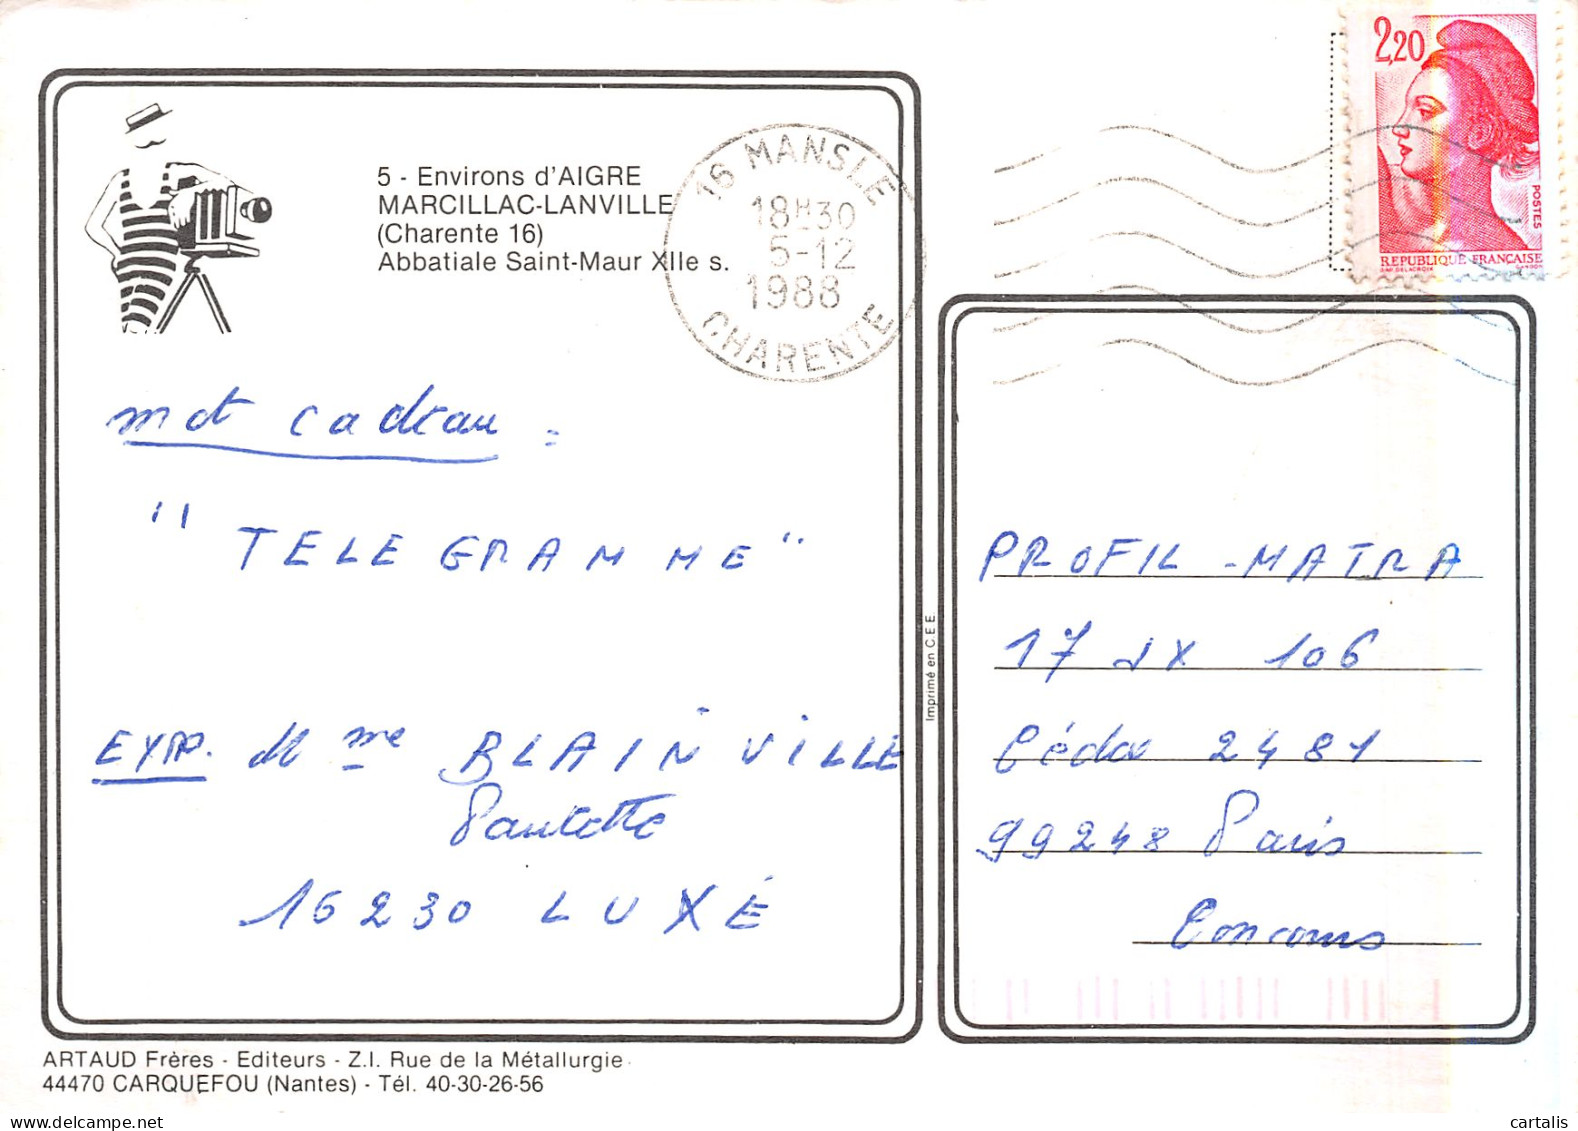 2,20
POSTES
REPUBLIQUE FRANÇAISE
16 MANSLE
18H30
5-12
1988
CHARENTE
5 - Environs d'AIGRE
MARCILLAC-LANVILLE
(Charente 16)
Abbatiale Saint-Maur XIIe s.
mot cadeau :
"TELEGRAMME"
EXP. Mme BLAINVILLE
Paulette
16230 LUXÉ
Imprimé en C.E.E.
PROFIL - MATRA
17 IX 106
Cédex 2481
99248 Paris
Concours
ARTAUD Frères - Editeurs - Z.I. Rue de la Métallurgie
44470 CARQUEFOU (Nantes) - Tél. 40-30-26-56
cartalis.com